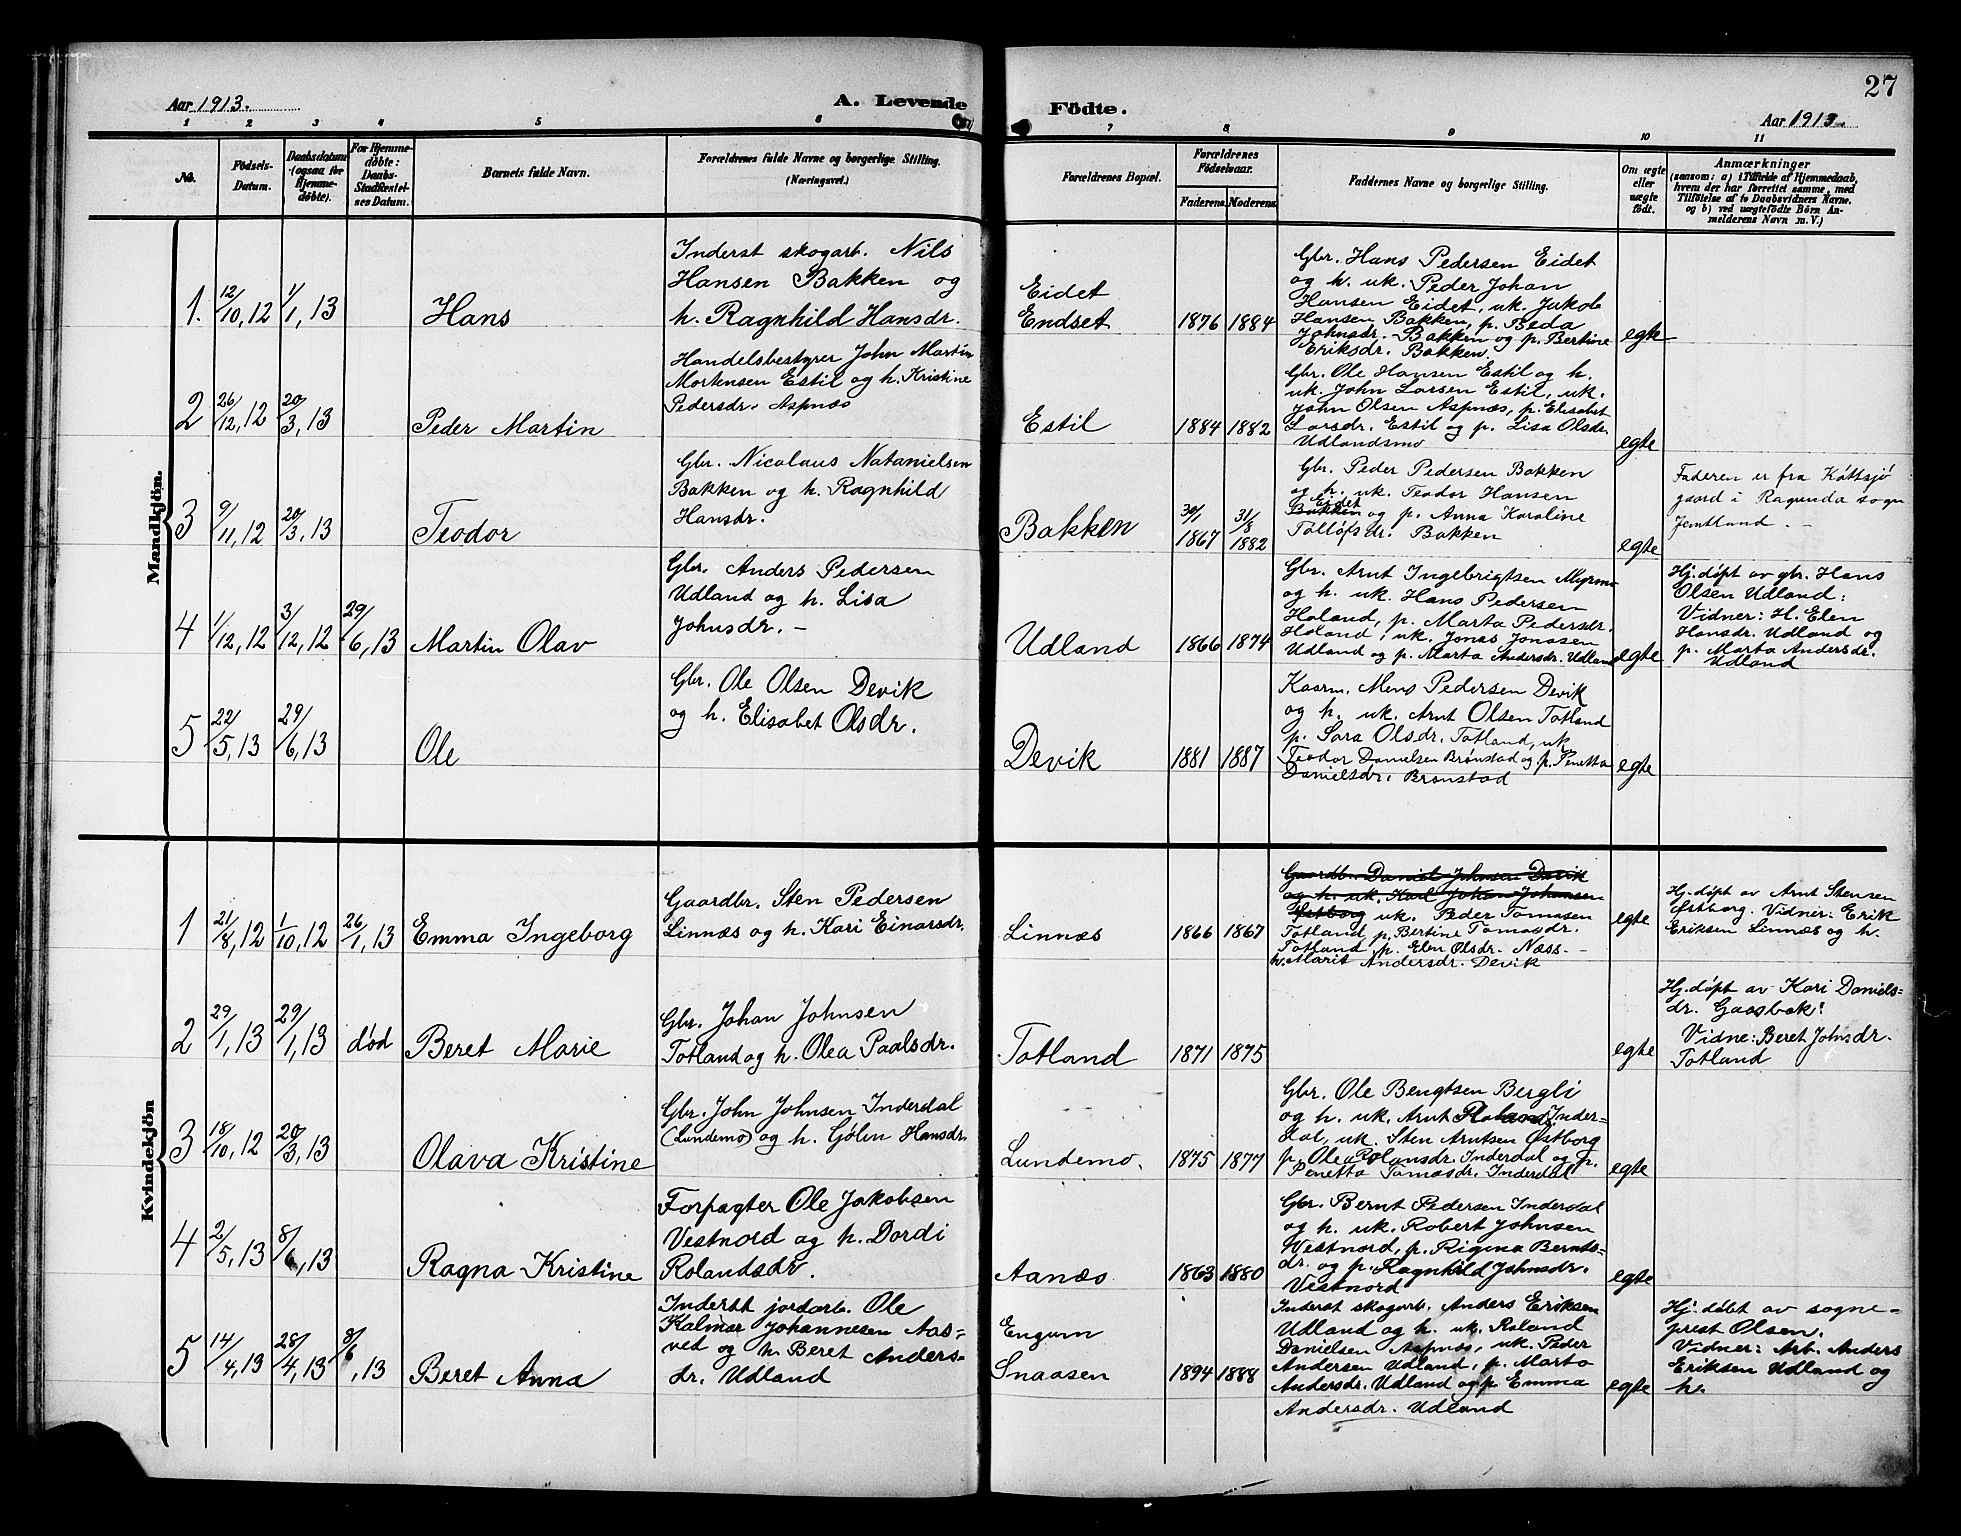 27
Aar 1913.
A. Levende
Födte.
Aar 1913.
1 2 3 4 5 6 7 8 9 10 11
No.
Födsels-
Datum.
Daabsdatum
(ogsaa for
Hjemme-
døbte).
For Hjemme-
døbte:
Daabs-
Stadfæstel-
ses Datum.
Barnets fulde Navn.
Forældrenes fulde Navne og borgerlige Stilling.
(Næringsvei.)
Forældrenes Bopæl.
Forældrenes
Födselsaar.
Faderens.
Moderens.
Faddernes Navne og borgerlige Stilling.
Om ægte
eller
uægte
født.
Anmærkninger
(saasom: a) i Tilfælde af Hjemmedaab,
hvem der har forrettet samme, med
Tilføielse af to Daabsvidners Navne,
og b) ved uægtefödte Börn An-
melderens Navn m. V.)
Mandkjön.
1. 12/10, 12 1/1, 13
Hans
Inderst skogarb. Nils
Hansen Bakken og
h. Ragnhild Hansdr.
Eidet
Endset
1876 1884
Gbr. Hans Pedersen Eidet
og h. uk. Peder Johan
Hansen Eidet, uk. Jakob
Hansen Bakken, p. Beda
Johnsdr. Bakken og p. Bertine
Eriksdr. Bakken.
egte
2 26/12, 12 20/3, 13
Peder Martin
Handelsbestyrer John Martin
Mortensen Estil og h. Kristine
Pedersdr. Aspnæs
Estil
1884 1882
Gbr. Ole Hansen Estil og h.
uk. John Larsen Estil, uk.
John Olsen Aspnæs, p. Elisabet
Larsdr. Estil og p. Lisa Olsdr.
Udlandsmo
egte
3 9/11, 12 20/3, 13
Teodor
Gbr. Nicolaus Natanielsen
Bakken og h. Ragnhild
Hansdr.
Bakken
30/1 1867 31/8 1882
Gbr. Peder Pedersen Bakken
og h. uk. Teodor Hansen
Eidet
Bakken og p. Anna Karoline
Tollofsdr. Bakken
egte
Faderen er fra Kåttsjö
gaard i Ragunda sogn
Jemtland. –
4 1/12, 12 3/12, 12 29/6, 13
Martin Olav
Gbr. Anders Pedersen
Udland og h. Lisa
Johnsdr. –
Udland
1866 1874
Gbr. Arnt Ingebrigtsen Myrmo
og h. uk. Hans Pedersen
Haland, p. Marta Pedersdr.
Haland, uk. Jonas Jonasen
Udland og p. Marta Andersdr. Udland
egte
Hj. døpt av gbr. Hans
Olsen Udland:
Vidner: H. Elen
Hansdr. Udland og
p. Marta Andersdr.
Udland
5 22/5, 13 29/6, 13
Ole
Gbr. Ole Olsen Devik
og h. Elisabet Olsdr.
Devik
1881 1887
Kaarm. Mens Pedersen Devik
og h. uk. Arnt Olsen Totland
p. Sara Olsdr. Totland, uk
Teodor Danielsen Brønstad og p. Penetta
Danielsdr. Brønstad
egte
Kvindekjön
1 21/8, 12 1/10, 12 26/1, 13
Emma Ingeborg
Gaardbr. Sten Pedersen
Linnæs og h. Kari Einarsdr.
Linnæs
1866 1867
Gaardb. Daniel Johnsen Devik
og h. uk. Karl Johan Johansen
Østborg uk. Peder Tomasen
Totland, p. Bertine Tomasdr.
Totland, p. Elen Olsdr. Næss. –
h. Marit Andersdr. Devik
egte
Hj. døpt av Arnt Stensen
Østborg. Vidner: Erik
Eriksen Linnæs og h.
2 29/1, 13 29/1, 13 død
Beret Marie
Gbr. Johan Johnsen
Totland og h. Olea Paalsdr.
Totland
1871 1875
egte
Hj. døpt av Kari Daniels=
dr. Gaasbak:
Vidne: Beret Johnsdr.
Totland
3 18/10, 12 20/3, 13
Olava Kristine
Gbr. John Johnsen Inderdal
(Lundemo) og h. Gjølin Hansdr.
Lundemo.
1875 1877
Gbr. Ole Bengtsen Bergli
og h. uk. Arnt Inder=
dal, uk. Sten Arntsen Østborg
p. Olea Rolansdr. Inderdal og p.
Penetta Tomasdr. Inderdal
egte
4 2/5, 13 8/6, 13
Ragna Kristine
Forpagter Ole Jakobsen
Vestnord og h. Dordi
Rolandsdr.
Aanæs
1863 1880
Gbr. Bernt Pedersen Inderdal
og h. uk. Robert Johnsen
Westnord, p. Rigma Bernts=
dr. og p. Ragnhild Johnsdr.
Vestnord
egte
5 14/4, 13 28/4, 13 8/6, 13
Beret Anna
Inderst jordarb. Ole
Kalmar Johannesen Aas=
ved og h. Beret Anders=
dr. Udland
Engum
Snaasen
1894 1888
Inderst skogarb. Anders Eriksen
Udland og h. uk. Roland
Danielsen Aspnæs, uk. Peder
Andersen Udland, p. Marta
Andersdr. Udland og p. Emma
Andersdr. Udland
egte
Hj. døbt av sogne=
prest Olsen.
Vidner: Arb. Anders
Eriksen Udland og
h.